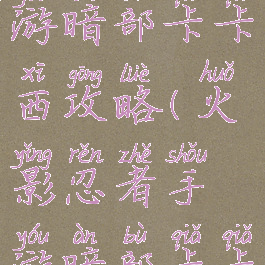 游暗部卡卡
xī gōng lüè huǒ
西攻略(火
yǐng rěn zhě shǒu
影忍者手
yóu àn bù qiǎ qiǎ
游暗部卡卡